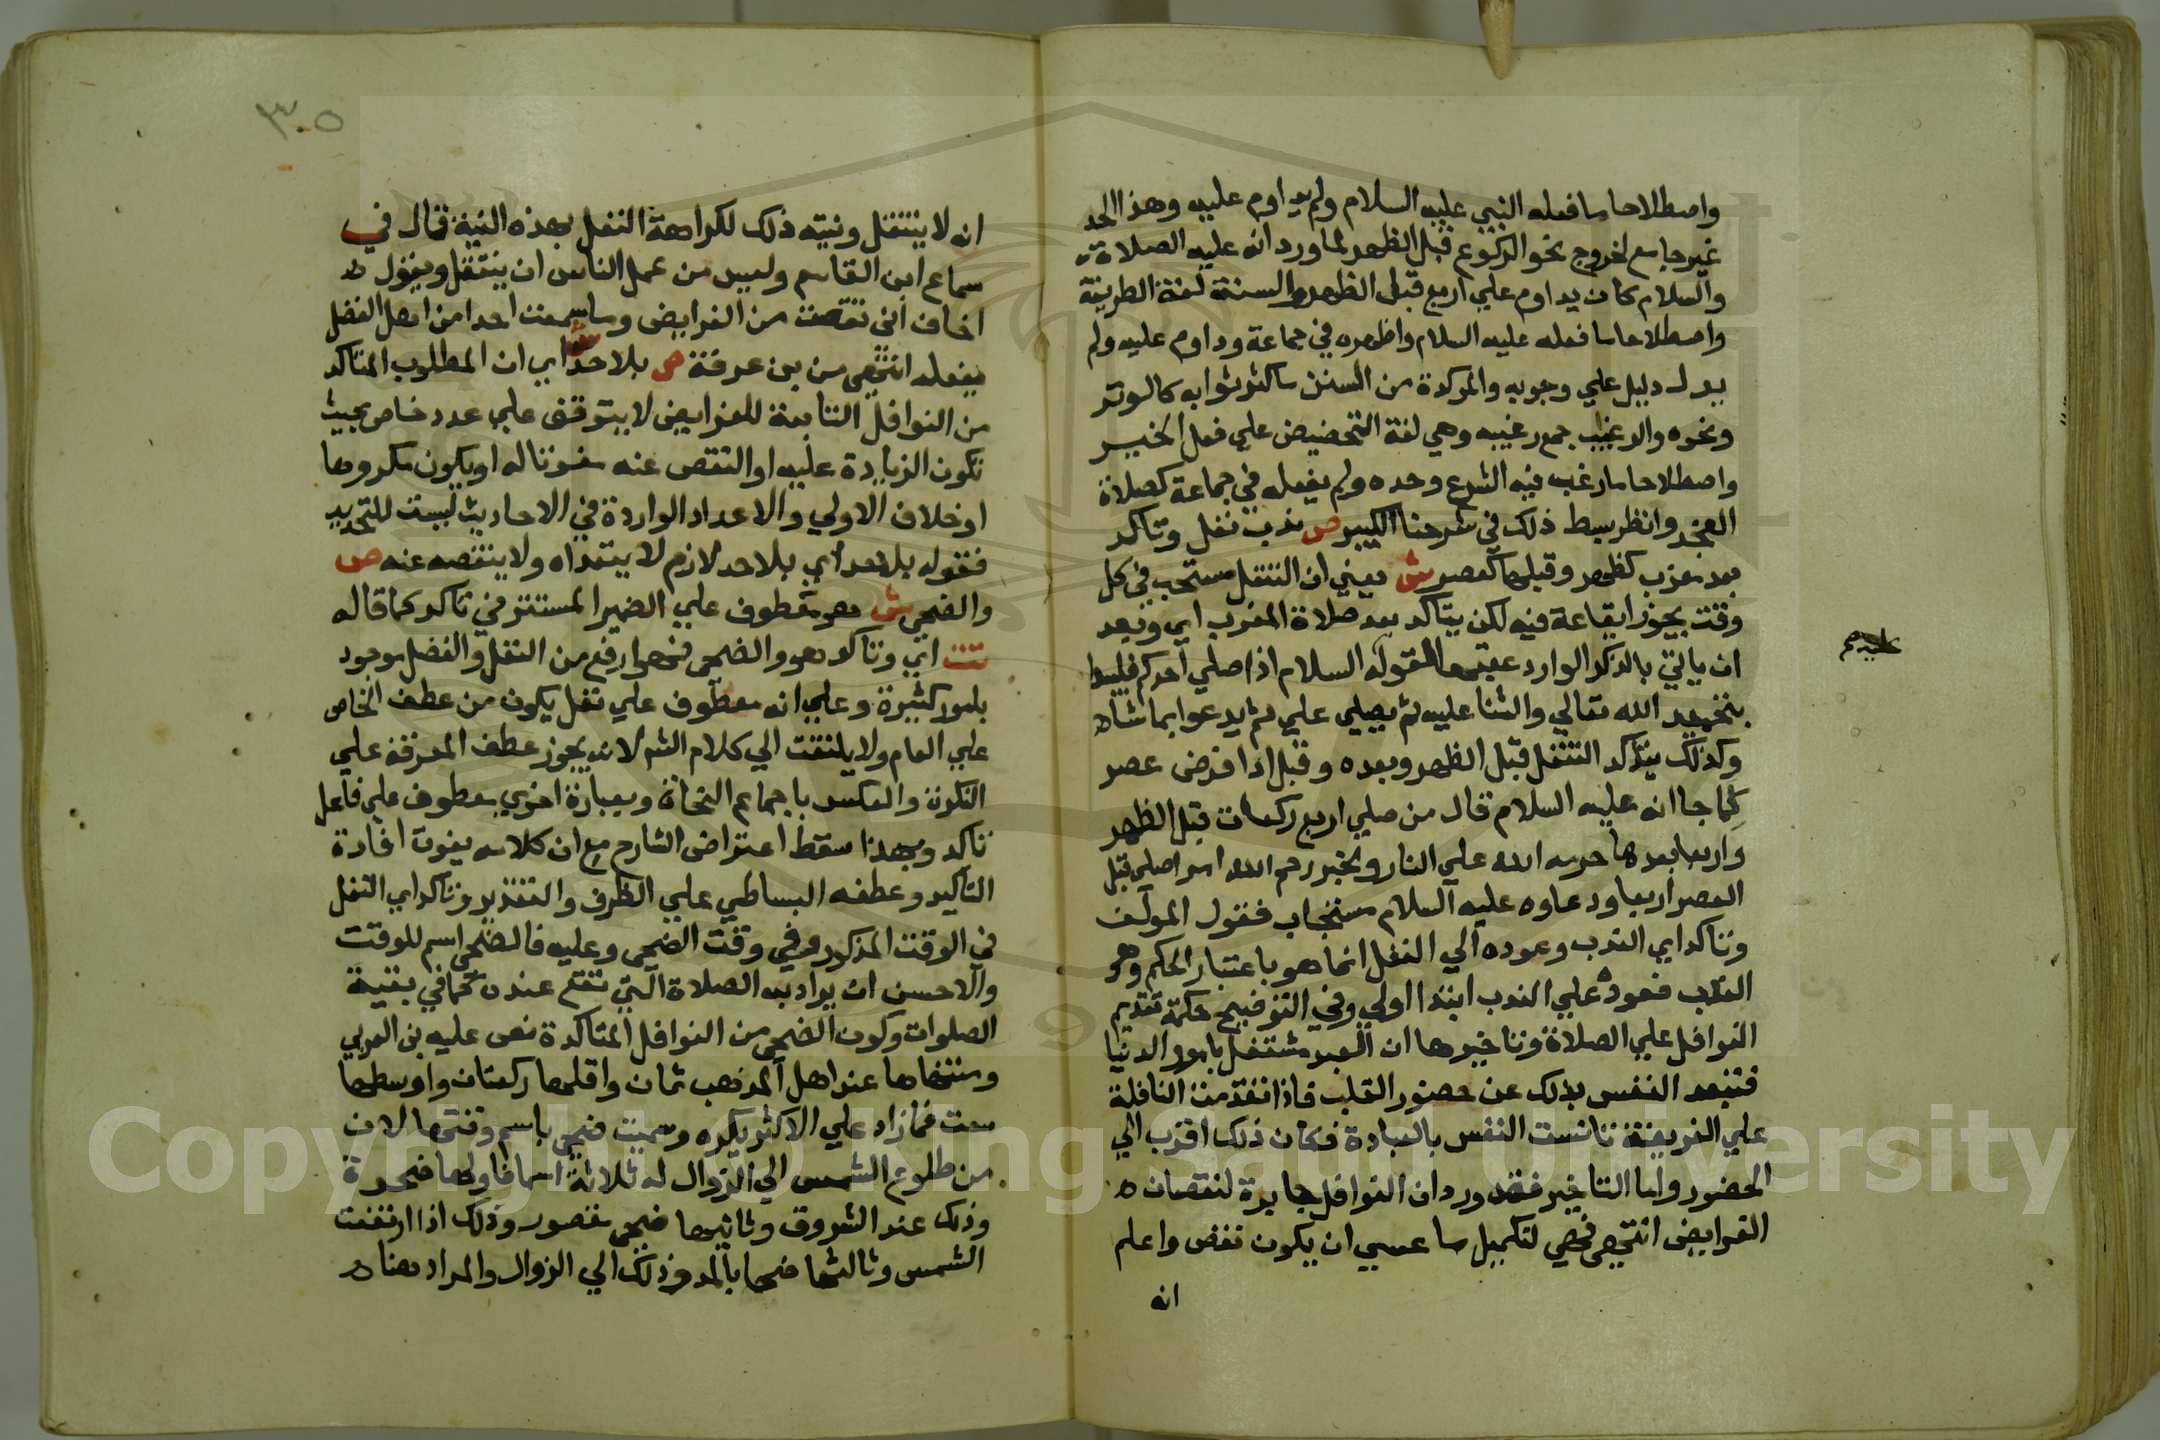 واصطلاحا ما فعله النبي عليه السلام ولم يداوم عليه وهذا الحد
غير جامع لخروج نحو الركوع قبل الظهر لما ورد انه عليه الصلاة
والسلام كان يداوم علي اربع قبل الظهر والسنة لغة الطريقة
واصطلاحا ما فعله عليه السلام واظهره في جماعة وداوم عليه ولم
يدل دليل علي وجوبه والموكدة من السنن ما كثر ثوابه كالوتر
ونحوه والرغايب جمع رغيبه وهي لغة التحضيض علي فعل الخير
واصطلاحا ما رغب فيه الشرع وحده ولم يفعله في جماعة كصلاة
الفجر وانظر بسط ذلك في شرحنا الكبير ص ندب نفل وتاكد
بعد مغرب كظهر وقبلها كعصر ش يعني ان التنفل مستحب في كل
وقت يجوز ايقاعه فيه لكن يتاكد بعد صلاة المغرب اي وبعد
ان ياتي بالذكر الوارد عقبها لقوله السلام اذا صلي احدكم فليبدا
عليه م
بتحميد الله تعالي والثنا عليه ثم يصلي علي ثم يدعوا بما شاء
وكذلك يتاكد التنفل قبل الظهر وبعده وقبل اذا فرض عصر
كما جا انه عليه السلام قال من صلي اربع ركعات قبل الظهر
واربعا بعدها حرمه الله علي النار ولخبر رحم الله امرا صلي قبل
العصر اربعا ودعاوه عليه السلام مستجاب فقول المولف
وتاكد اي الندب وعوده الي النفل انما هو باعتبار الحكم وهو
الندب فعوده علي الندب ابتدا اولي وفي التوضيح حكمة تقديم
النوافل علي الصلاة وتاخيرها ان العبد مشتغل بامور الدنيا
فتبعد النفس بذلك عن حضور القلب فاذا تقدمت النافلة
علي الفريضة تانست النفس بالعبادة فكان ذلك اقرب الي
الحضور واما التاخير فقد ورد ان النوافل جابرة لنقصان
الفرايض انتهي فهي لتكميل ما عسي ان يكون نقص واعلم
انه
٣٠٥
انه لا يتنفل ونيته ذلك لكراهة النفل بهذه النية قال في
سماع ابن القاسم وليس من عمل الناس ان يتنفل ويقول
اخاف اني نقصت من الفرايض وما سمعت احدا من اهل الفضل
يفعله انتهي من بن عرفة ص بلا حد ش اي ان المطلوب المتاكد
من النوافل التابعة للفرايض لا يتوقف علي عدد خاص بحيث
تكون الزيادة عليه او النقص عنه مفوتا له او يكون مكروها
او خلاف الاولي والاعداد الواردة في الاحاديث ليست للتحديد
فقوله بلا حد اي بلا حد لازم لا يتعداه ولا ينقصه عنه ص
والضحي ش هو معطوف علي الضمير المستتر في تاكد كما قاله
تت اي وتاكد هو والضحي فهي ارفع من النفل والفصل موجود
بامور كثيرة وعلي انه معطوف علي نفل يكون من عطف الخاص
علي العام ولا يلتفت الي كلام الشم لانه يجوز عطف المعرفة علي
النكرة والعكس باجماع النحاة وبعبارة اخري معطوف علي فاعل
تاكد وبهذا سقط اعتراض الشارح مع ان كلامه يفوت افادة
التاكيد وعطفه البساطي علي الظرف والتقدير وتاكد اي النفل
في الوقت المذكور وفي وقت الضحي وعليه فالضحي اسم للوقت
والاحسن ان يراد به الصلاة التي تقع عنده كما في بقية
الصلوات وكون الضحي من النوافل المتاكدة نص عليه بن العربي
ومنتهاها عند اهل المذهب ثمان واقلها ركعتان واوسطها
ست فما زاد علي الاكثر يكره وسميت ضحي باسم وقتها لان
من طلوع الشمس الي الزوال له ثلاثة اسما فاولها ضحوة
وذلك عند الشروق وثانيها ضحي مقصور وذلك اذا ارتفعت
الشمس وثالثها ضحا بالمد وذلك الي الزوال والمراد هنا
Copyright © King Saud University